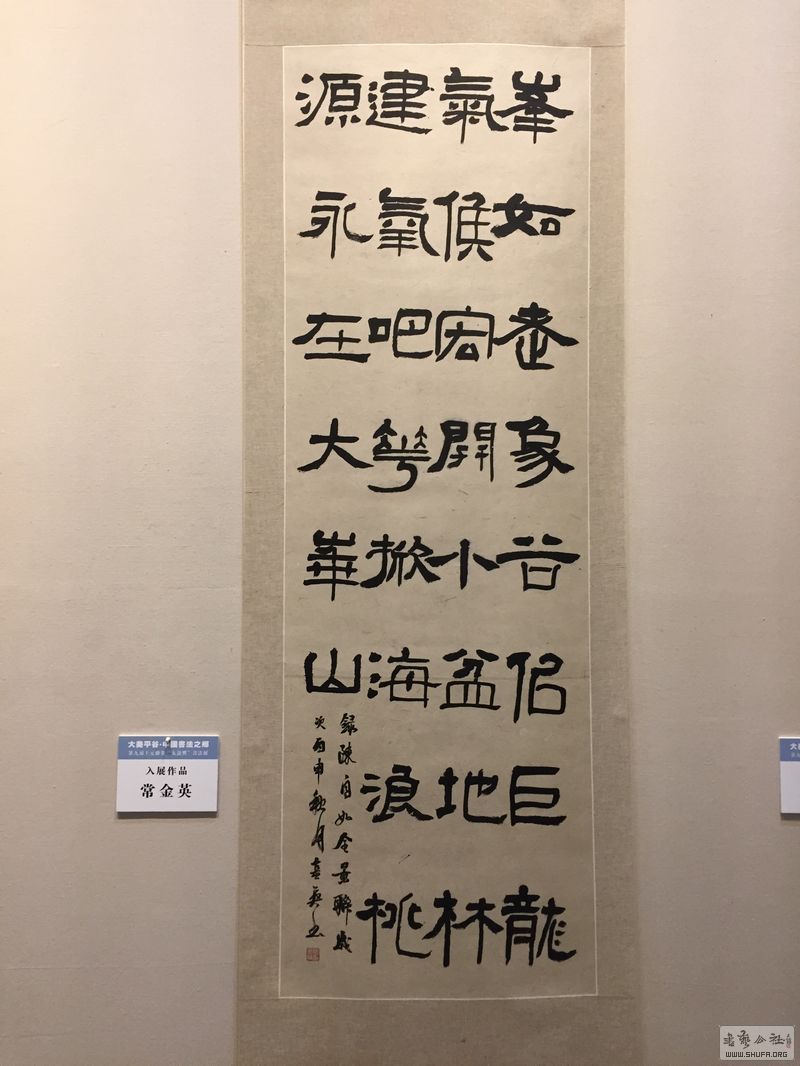 峯如走象谷佀巨龍
氣候宏開小盆地林
建氧吧花掀海浪桃
源永在大華山
錄陳自如景聯歲
次丙申秋月金英書
大美平谷·中國書法之鄉
入展作品
常金英
大
書藝公社
WWW.SHUFA.ORG